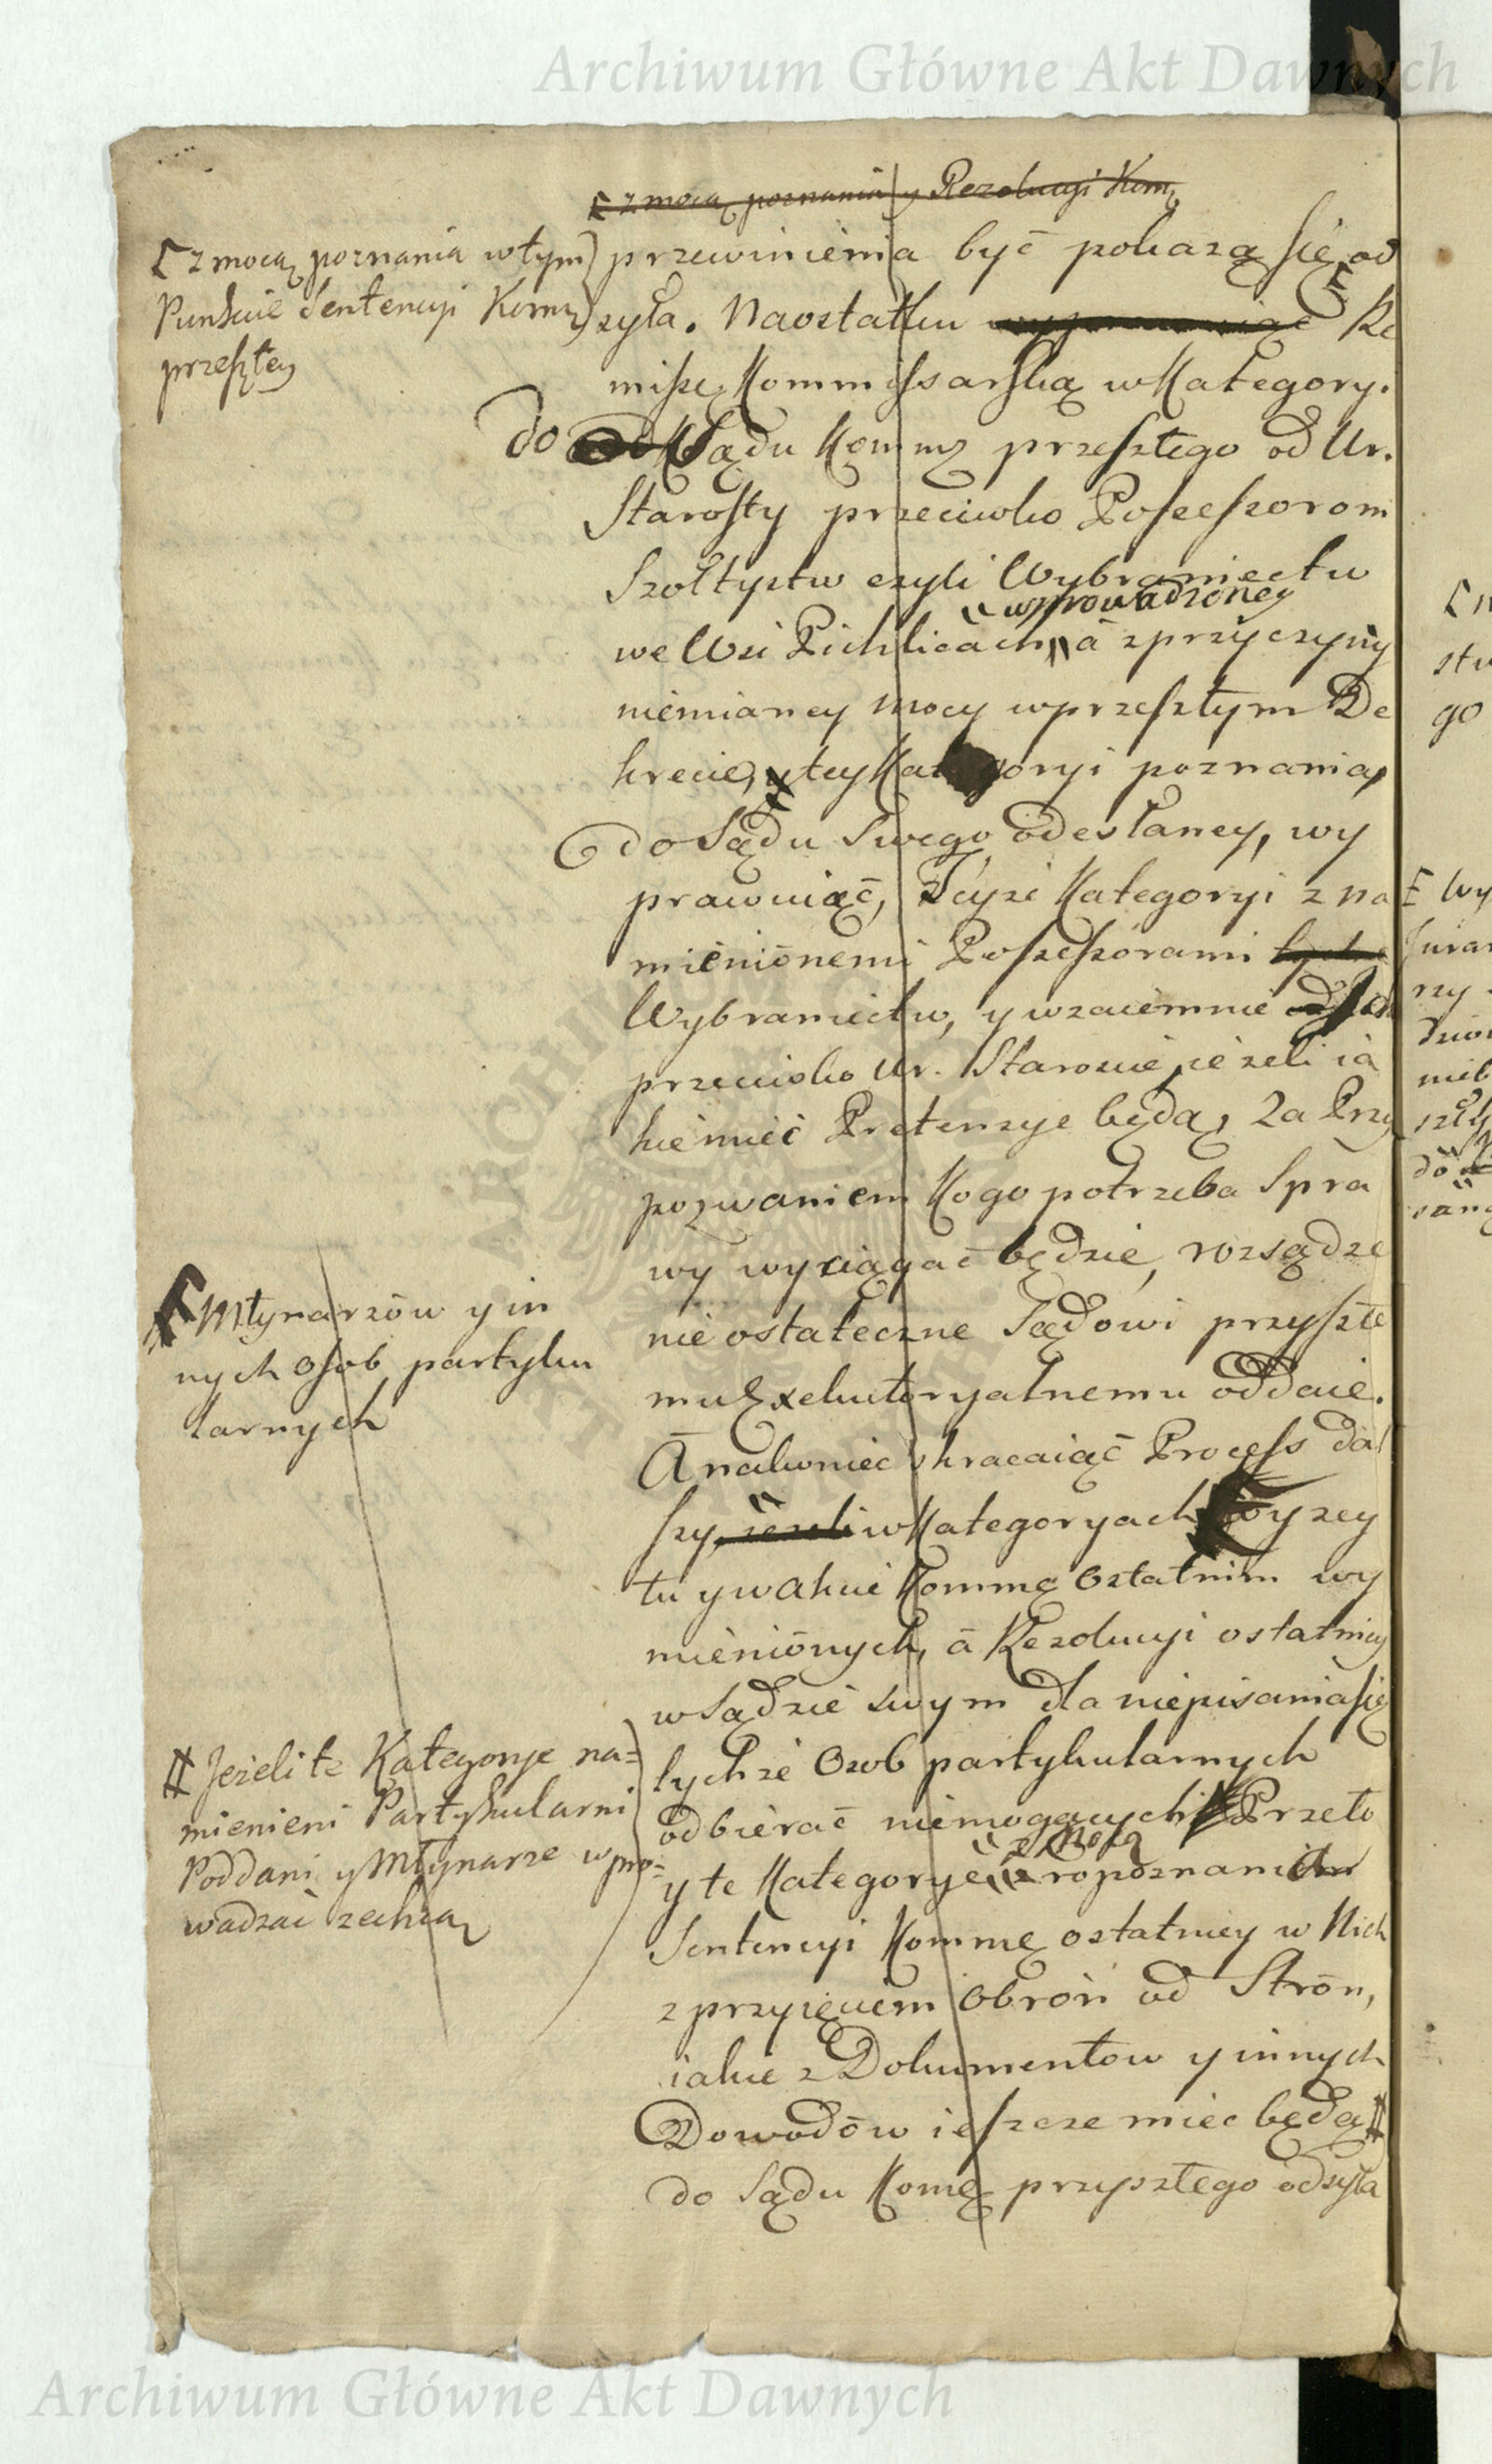 Archiwum Główne Akt Dawnych
[ z mocą poznania y Rezolucyi Komą
[ z mocą poznania w tym
Punkcie Sentencyi Kommą
przeszłey
przewinienia być pokazą się od
syła. Naostatku Re
missę Kommissarską w Kategory.
do Sądu Kommą przeszłego od Ur.
Starosty przeciwko Possessorom
Szołtystw czyli Wybraniectw
wprowadzoney
we Wsi Pichlicach, á z przyczyny
niemianey mocy w przeszłym De
krecie, tey Kategoryi poznania,
do Sądu Swego odesłaney, wy
prawuiąć, Teyże Kategoryi z na
mienionemi Possessorami
Wybraniectw, y wzaiemnie
przeciwko Ur. Staroscie ieżeli ia
kie mieć Pretensye będą, Za Przy
pozwaniem Kogo potrzeba Spra
wy wyciągać będzie, rozsądze
nie ostateczne Sądowi przyszłe
mu Exekutoryalnemu oddaie.
A nakoniec skracaiąć Process dal
szy, w Kategoryach wyzey
tu y w akcie Kommą Ostatnim wy
mienionych, á Rezolucyi ostatniey
w Sądzie swym dla niepisania się
tychże Osob partykularnych
odbierać niemogących Przeto
z Mocą
y te Kategorye rospoznania
Sentencyi Kommą ostatniey w Nich
z przyięciem Obron od Stron,
iakie z Dokumentow y innych
Dowodów ieszcze miec będą #
do Sądu Komą przyszłego odsyła
Młynarzów y in
nych Osob partyku
larnych
# Jeżeli te Kategorye na=
mienieni Partykularni
Poddani y Młynarze wpro=
wadzać zechcą
[ Wy
stw
go
Archiwum Główne Akt Dawnych